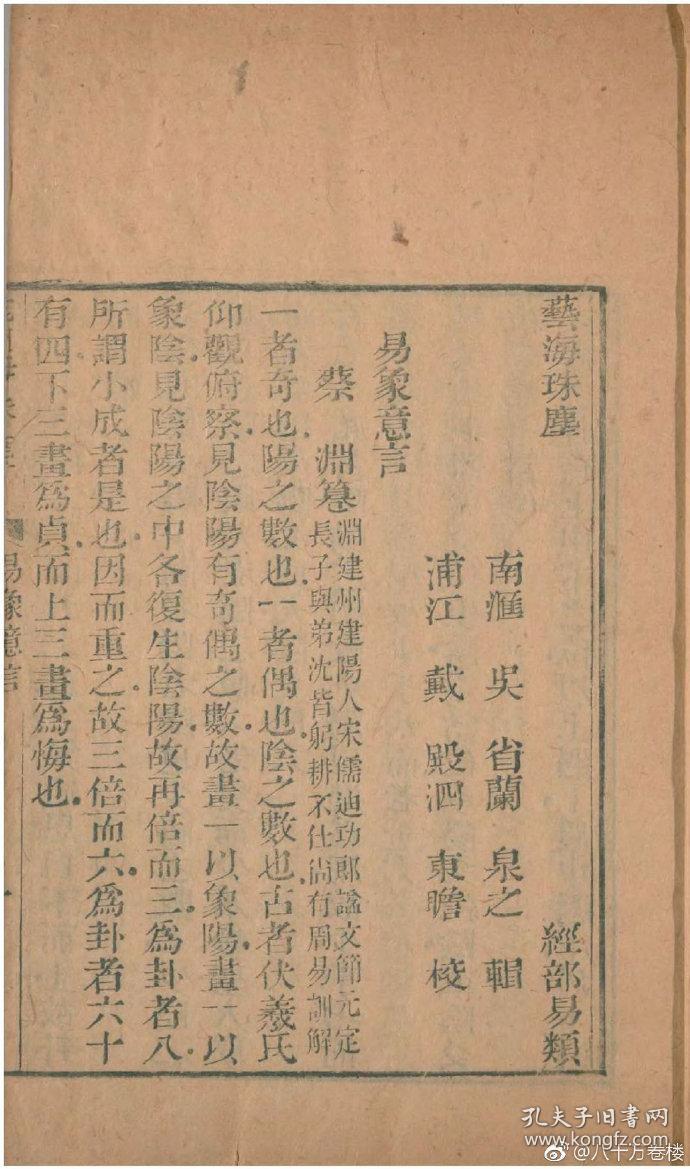 藝海珠塵 經部易類
南滙 吳 省蘭 泉之 輯
浦江 戴 殿泗 東瞻 校
易象意言
蔡 淵 篹 淵建州建陽人宋儒迪功郎諡文節元定
長子與弟沈皆躬耕不仕尚有周易訓解
一者奇也陽之數也--者偶也陰之數也古者伏羲氏
仰觀俯察見陰陽有奇偶之數故畫一以象陽畫--以
象陰見陰陽之中各復生陰陽故再倍而三爲卦者八
所謂小成者是也因而重之故三倍而六爲卦者六十
有四下三畫爲貞而上三畫爲悔也
易象意言
孔夫子旧書网
www.kongfz.com
@八十万卷楼